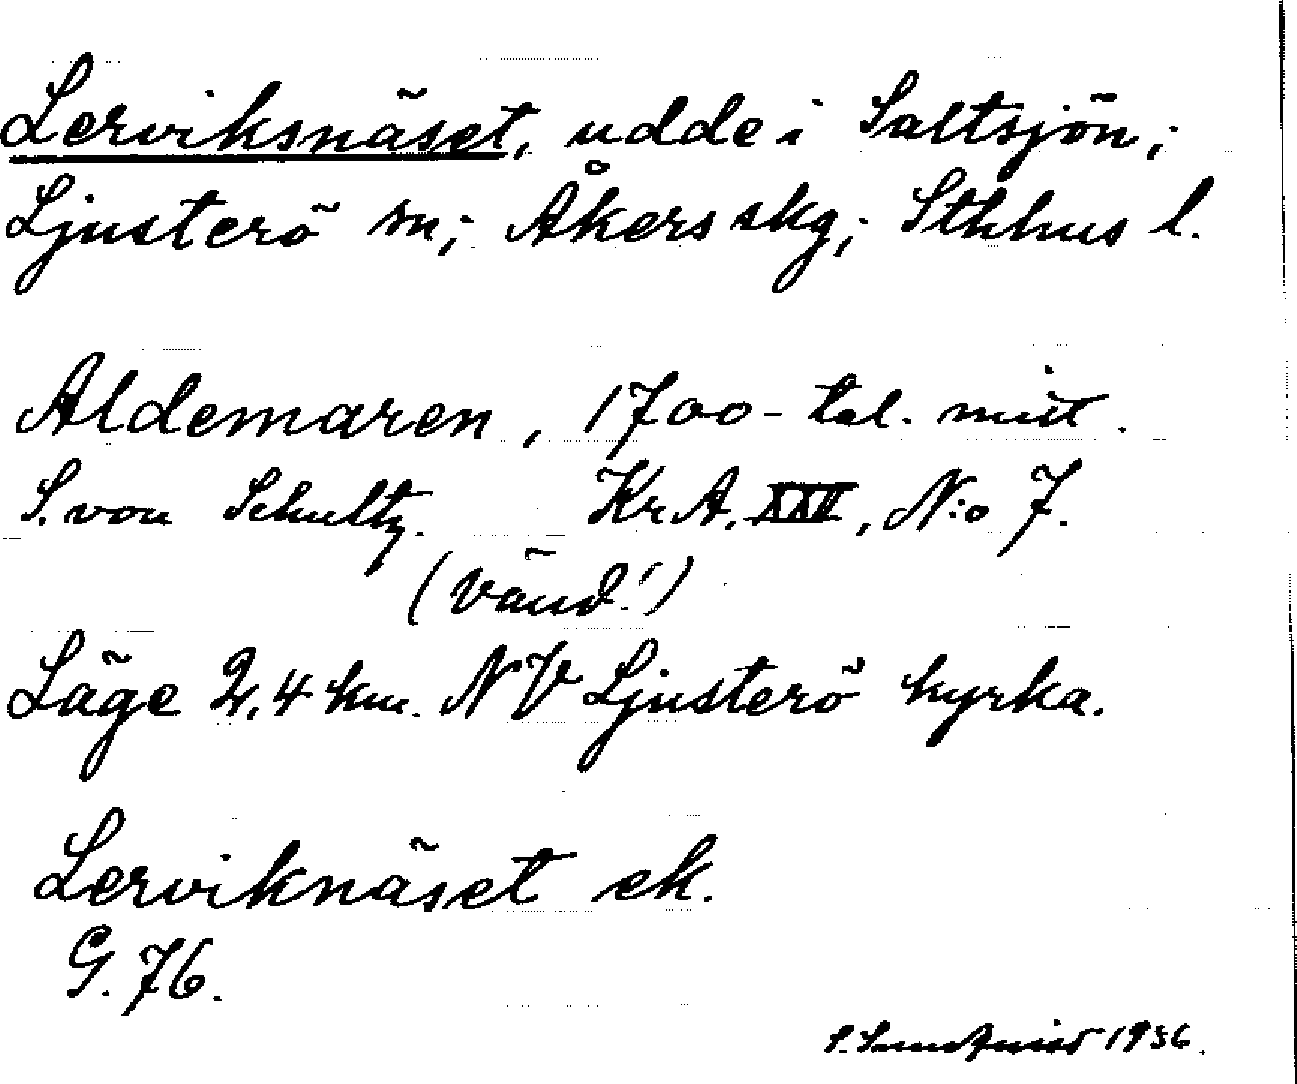 Lerviksnäset, udde i Saltsjön;
Ljusterö sn; Åkers skg; Sthlms l.
Aldemaren, 1700-tal. mitt.
S. von Schultz. Kr A. XXV, N:o 7.
(vänd!)
Läge 2,4 km. NV Ljusterö kyrka.
Lerviknäset ek.
G. 76.
1936.